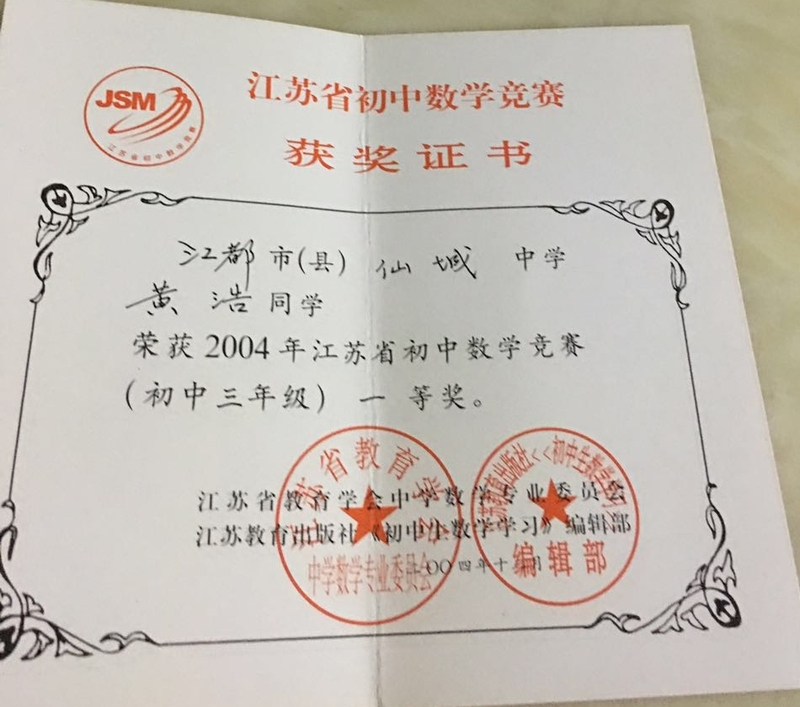 JSM
江苏省初中数学竞赛
江苏省初中数学竞赛
获奖证书
江都市(县)仙城中学
黄浩同学
荣获2004年江苏省初中数学竞赛
(初中三年级)一等奖。
江苏省教育学会中学数学专业委员会
江苏教育出版社《初中生数学学习》编辑部
〇〇四年十
江苏省教育学会
中学数学专业委员会
江苏教育出版社<<初中生数学学习>>
编辑部